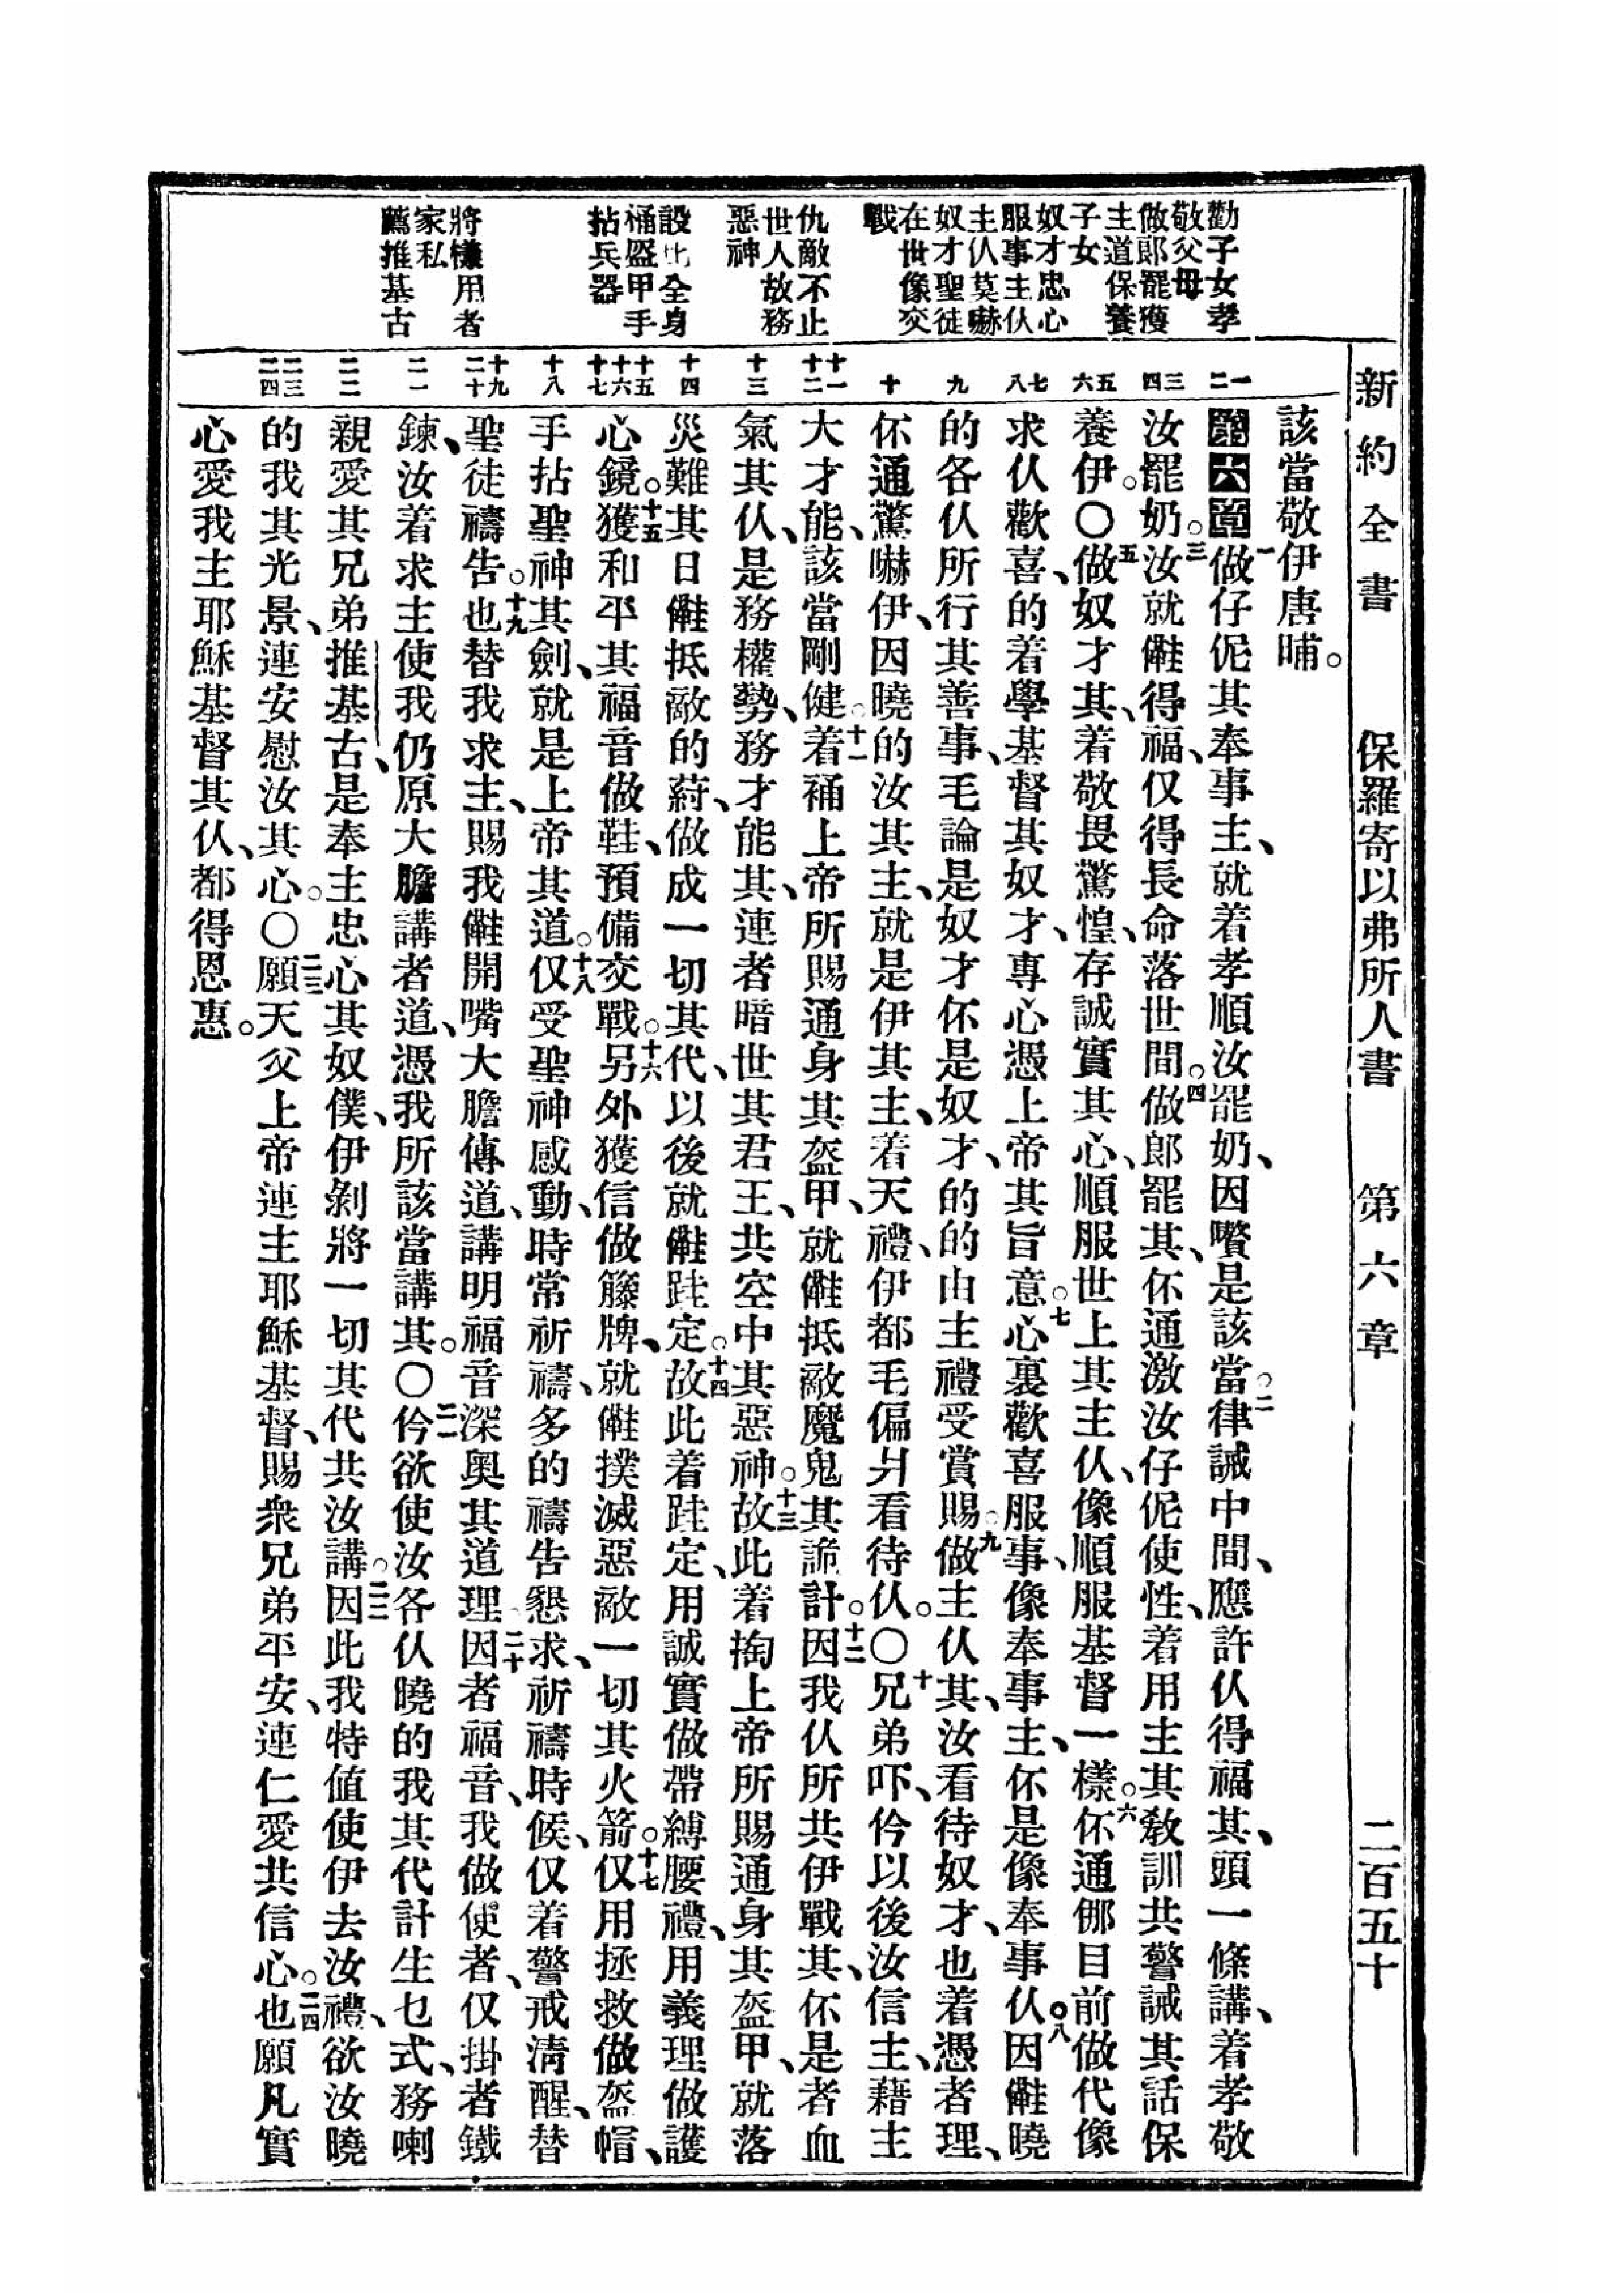 新約全書 保羅寄以弗所人書 第六章 二百五十
勸子女孝
敬父母
做郎罷獲
主道保養
子女
奴才忠心
服事主仈
主仈莫嚇
奴才聖徒
在世像交
戰
仇敵不止
世人故務
惡神
設此全身
桶盔甲手
拈兵器
將樣用者
家私
薦推基古
該當敬伊唐晡。
一二
第六章一做仔伲其奉事主、就着孝順汝罷奶、因嚽是該當。二律誡中間、應許仈得福其、頭一條講、着孝敬
三四
汝罷奶。三汝就㒰得福、仅得長命落世間。四做郎罷其、伓通激汝仔伲使性、着用主其敎訓共警誡其話保
五六
養伊。〇五做奴才其、着敬畏驚惶、存誠實其心、順服世上其主仈、像順服基督一樣。六伓通㑚目前做代像
七八
求仈歡喜、的着學基督其奴才、專心憑上帝其旨意。七心裏歡喜服事、像奉事主、伓是像奉事仈。八因㒰曉
九
的各仈所行其善事、毛論是奴才伓是奴才、的的由主禮受賞賜。九做主仈其、汝看待奴才、也着憑者理、
十
伓通驚嚇伊、因曉的汝其主、就是伊其主、着天禮、伊都毛偏爿看待仈。〇十兄弟吓、仱以後汝信主、藉主
十一十二
大才能、該當剛健。十一着桶上帝所賜通身其盔甲、就㒰抵敵魔鬼其詭計。十二因我仈所共伊戰其、伓是者血
十三
氣其仈、是務權勢、務才能其、連者暗世其君王、共空中其惡神。十三故此着掏上帝所賜通身其盔甲、就落
十四
災難其日㒰抵敵的、葤做成一切其代、以後就㒰跬定。十四故此着跬定、用誠實做帶縛腰禮、用義理做護
十五十六十七
心鏡。十五獲和平其福音做鞋、預備交戰。十六另外獲信做籐牌、就㒰撲滅惡敵一切其火箭。十七仅用拯救做盔帽、
十八
手拈聖神其劍、就是上帝其道。十八仅受聖神感動、時常祈禱、多的禱告懇求、祈禱時候、仅着警戒淸醒、替
十九二十
聖徒禱告。十九也替我求主、賜我㒰開嘴大膽傳道、講明福音深奥其道理。二十因者福音、我做使者、仅掛者鐵
二一
鍊、汝着求主使我仍原大膽講者道、憑我所該當講其。〇二一仱欲使汝各仈曉的我其代計生乜式、務喇
二二
親愛其兄弟推基古、是奉主忠心其奴僕、伊剝將一切其代共汝講。二二因此我特値使伊去汝禮、欲汝曉
二三二四
的我其光景、連安慰汝其心。〇二三願天父上帝連主耶穌基督、賜衆兄弟平安、連仁愛共信心。二四也願凡實
心愛我主耶穌基督其仈、都得恩惠。